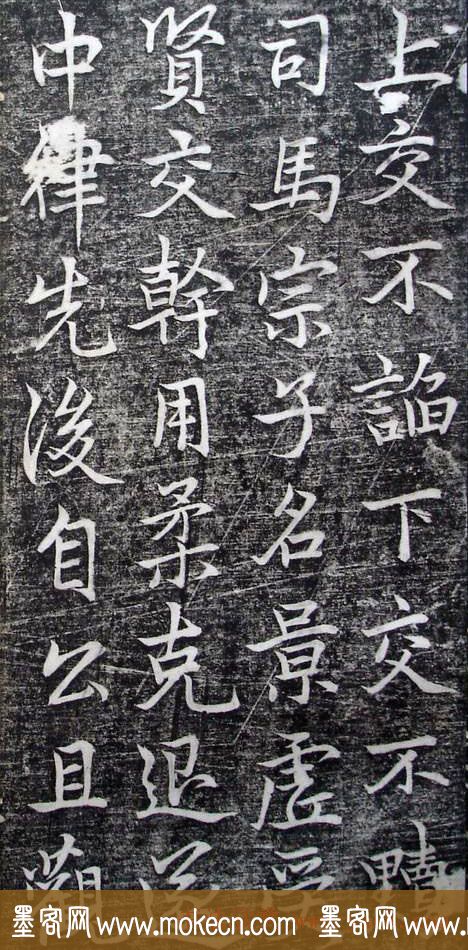 上交不諂下交不黷
司馬宗子名景虛
賢交幹用柔克退
中律先後自公且觀
墨客网 www.mokecn.com 墨客网 www.mokecn.com